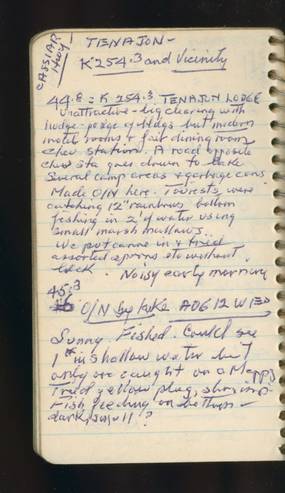 CASSIAR
Hwy!
TENAJON -
K 254.3 and Vicinity
44.8 = K 254.3. TENAJON LODGE
Unattractive - big clearing with
hodge-podge of bldgs but modern
motel rooms & fair dining room
Chev Station. A road opposite
Chev Sta goes down to lake
Several camp areas & garbage cans
Made O/N here. Tourists were
catching 12" rainbows bottom
fishing in 2' of water using
small marshmallows.
We put canoe in & tried
assorted spoons etc without
luck. Noisy early morning
45.3
O/N by lake AUG 12 WED
Sunny. Fished. Could see
in shallow water but
only one caught on a Mepps
Tried yellow plug, shrimp
Fish feeding on bottom -
dark,